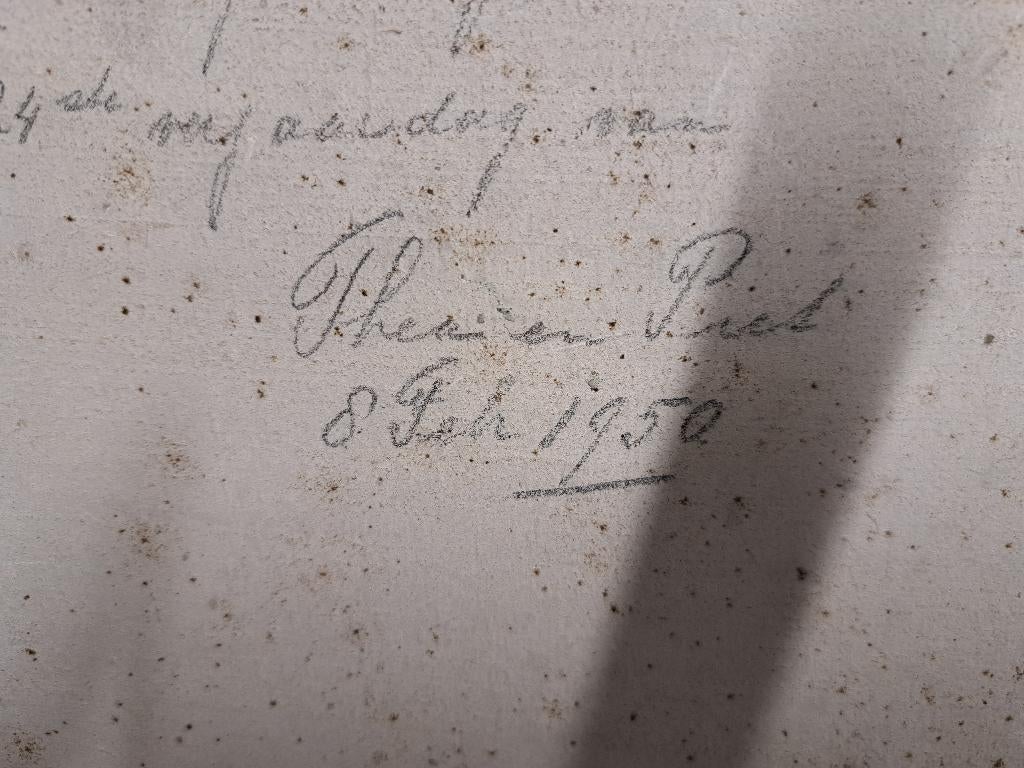 24ste verjaardag van
Thea en Piet
8 Feb 1950